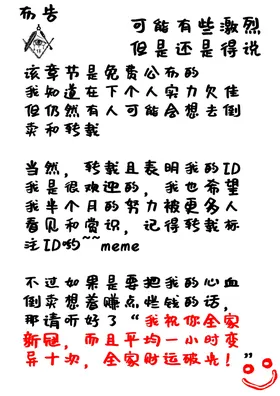 布告
可能有些激烈
但是还是得说
该章节是免费公布的
我知道在下个人实力欠佳
但仍然有人可能会想去倒
卖和转载
当然，转载且表明我的ID
我是很欢迎的，我也希望
我半个月的努力被更多人
看见和赏识，记得转载标
注ID哟~~meme
不过如果是要把我的心血
倒卖想着赚点烂钱的话，
那请听好了“我祝你全家
新冠，而且平均一小时变
异十次，全家财运破光！”